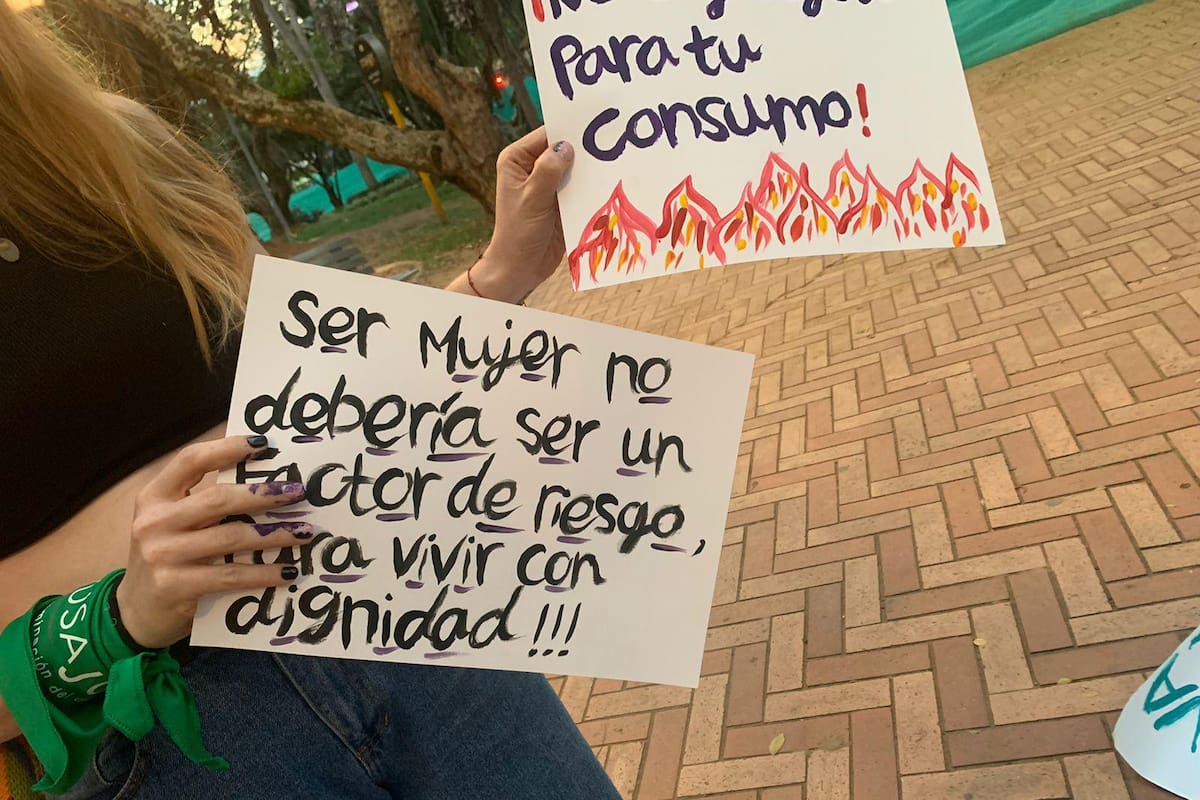 para tu
consumo!
Ser Mujer no
debería ser un
Factor de riesgo,
Para vivir con
dignidad !!!